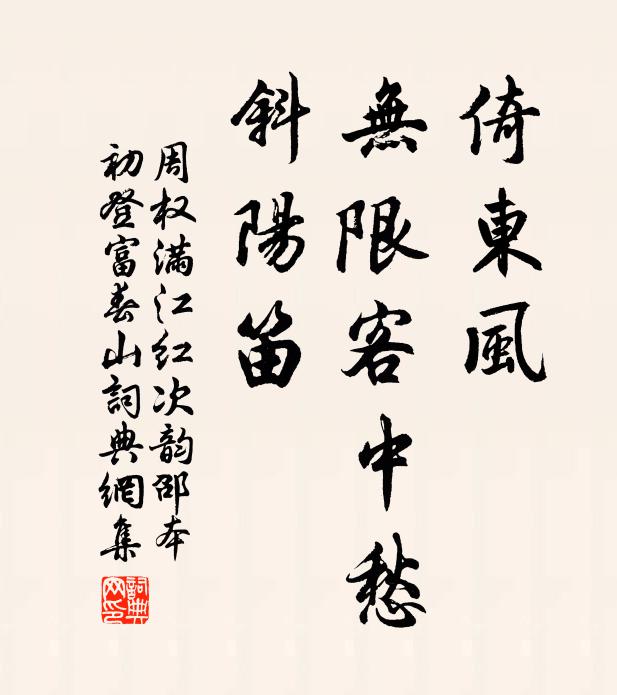 倚東風
無限客中愁
斜陽笛
周权滿江红次韵邵本
初登富春山詞典網集
詞典
网印